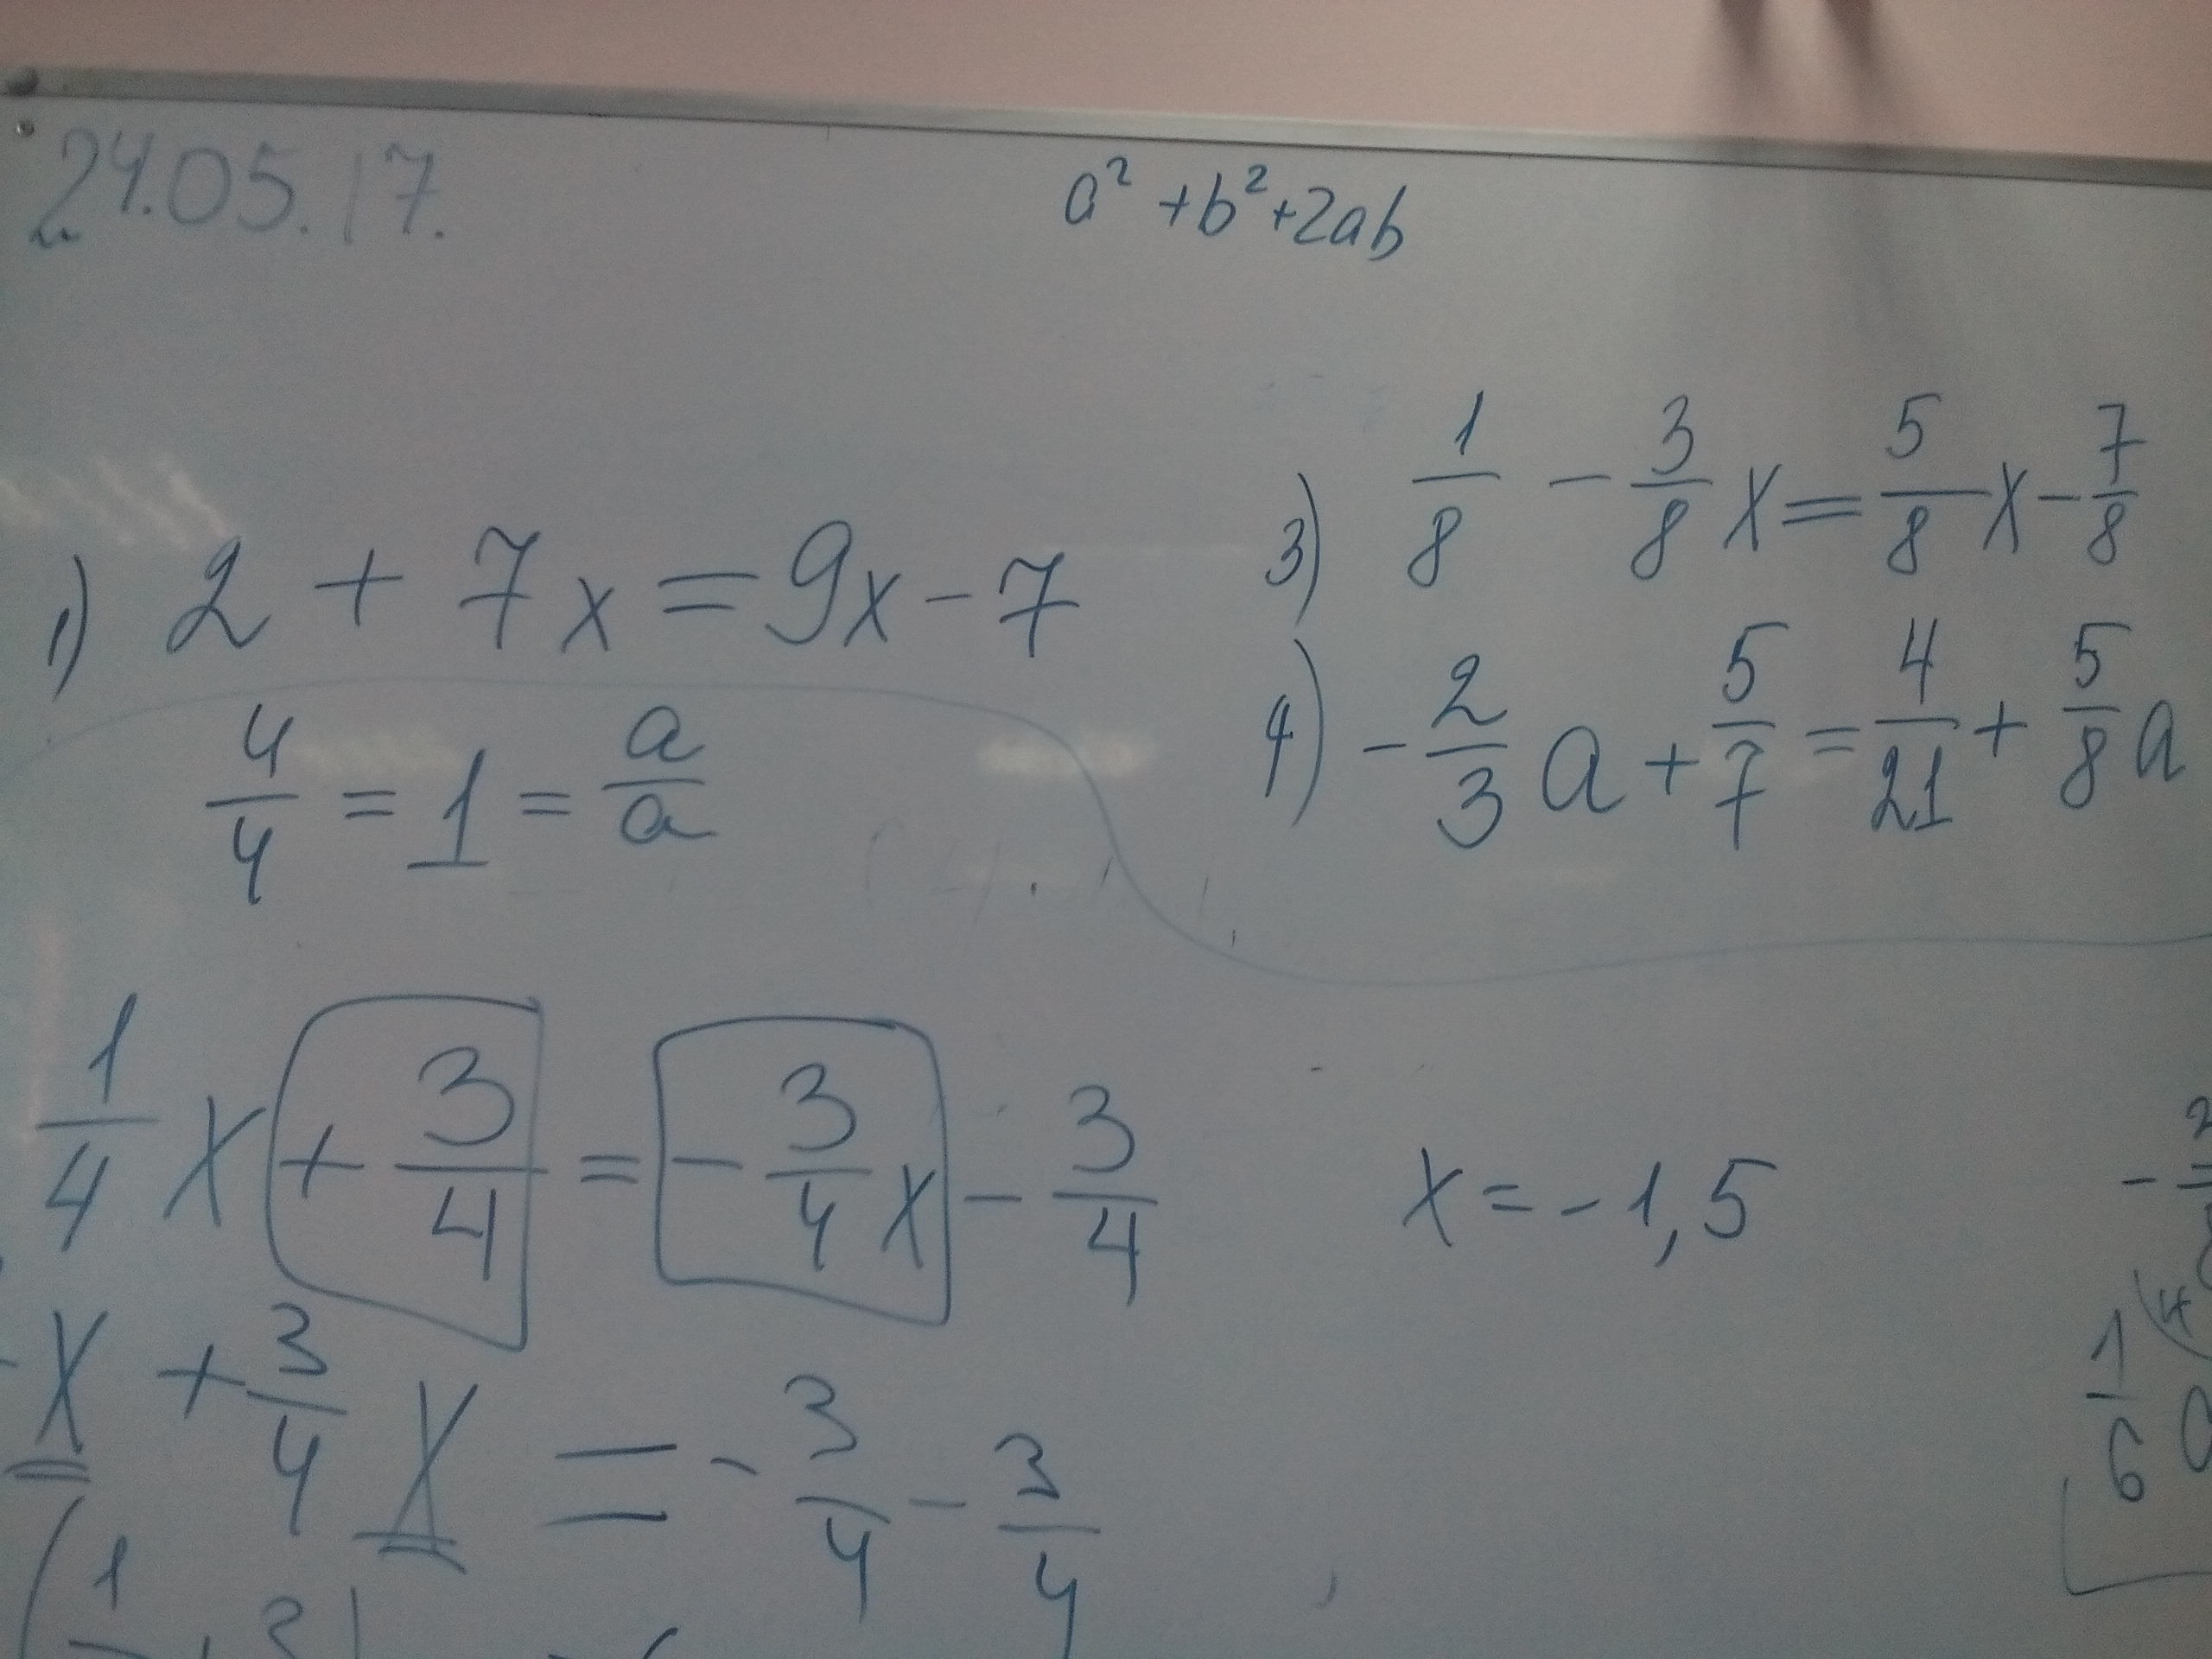 24.05.17.
a² + b² + 2ab
1) 2 + 7x = 9x - 7
4/4 = 1 = a/a
3) 1/8 - 3/8 x = 5/8 x - 7/8
4) - 2/3 a + 5/7 = 4/21 + 5/8 a
1/4 x + 3/4 = - 3/4 x - 3/4
x + 3/4 x = - 3/4 - 3/4
x = - 1,5
1/6